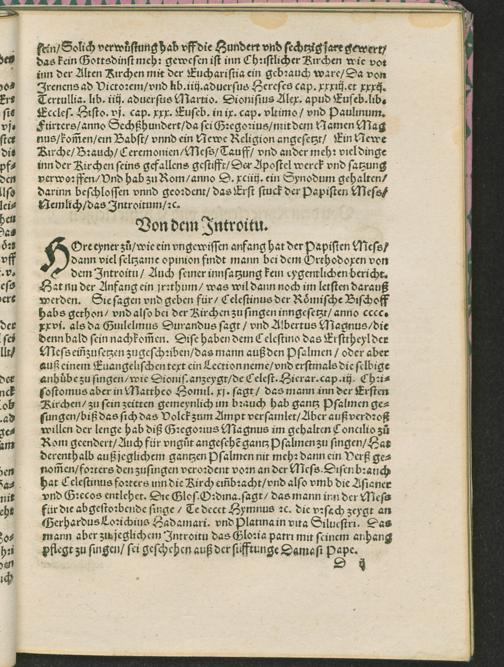 sein/ Solich verwüstung hab vff die Hundert vnd sechtzig jare gewert/
das kein Gottsdinst mehr gewesen ist inn Christlicher Kirchen wie vor
inn der Alten Kirchen mit der Eucharistia ein gebrauch ware/ Da von
Irenens ad Victorem/ vnd lib. iiij. aduersus Hereses cap. xxxij. et xxxij.
Tertullia. lib. iiij. aduersus Martio. Dionisius Alex. apud Euseb. lib.
Eccles. Histo. vj. cap. xxx. Euseb. in ix. cap. vltimo/ vnd Paulinum.
Fürters/ anno Sechßhundert/ da sei Gregorius/ mit dem Namen Mag
nus/ kom̃en/ ein Babst/ vnnd ein Newe Religion angesetzt/ Ein Newe
Kirche/ Brauch/ Ceremonien/ Mess/ Tauff/ vnd ander mehr viel dinge
inn der Kirchen seins gefallens gestifft/ Der Apostel werck vnd satzung
verworffen/ Vnd hab zu Rom/ anno D. xciiij. ein Synodum gehalten/
darinn beschlossen vnnd geordent/ das Erst stuck der Papisten Mess/
Nemlich/ das Introitum/ ꝛc.
Von dem Introitu.
HOre eyner zů/ wie ein vngewissen anfang hat der Papisten Mess/
dann viel seltzame opinion findt mann bei dem Orthodoxen von
dem Introitu/ Auch seiner innsatzung kein eygentlichen bericht.
Hat nu der Anfang ein jrrthum/ was wil dann noch im letsten darauß
werden. Sie sagen vnd geben für/ Celestinus der Römische Bischoff
habs gethon/ vnd also bei der Kirchen zu singen inngesetzt/ anno cccc.
xxvi. als da Guilelmus Durandus sagt/ vnd Albertus Magnus/ die
denn bald sein nachkom̃en. Dise haben dem Celestino das Erst theyl der
Mess einzůsetzen zu geschriben/ das mann auß den Psalmen/ oder aber
auß einem Euangelischen text ein Lection neme/ vnd erstmals die selbige
anhübe zu singen/ wie Dionis. anzeygt/ de Celest. Hierar. cap. iij. Chri-
sostomus aber in Mattheo Homil. xj. sagt/ das mann inn der Ersten
Kirchen/ zu sein zeitten gemeynlich im brauch hab gantz Psalmen ge-
sungen/ biß das sich das Volck zum Ampt versamlet/ Aber auß verdroß
willen der lenge hab diß Gregorius Magnus im gehalten Concilio zů
Rom geendert/ Auch für vngůt angesehẽ gantz Psalmen zu singen/ Hat
derenthalb auß jeglichem gantzen Psalmen nit mehr dann ein Verß ge-
nom̃en/ forters den zu singen verordent vorn an der Mess. Disen brauch
hat Celestinus forters inn die Kirch einbracht/ vnd also vmb die Asianer
vnd Grecos entlehet. Die Glos. Ordina. sagt/ das mann inn der Mess
für die abgestorbende singe/ Te decet Hymnus ꝛc. die vrsach zeygt an
Gerhardus Lorichius Hadamari. vnd Platina in vita Siluestri. Das
mann aber zu jeglichem Introitu das Gloria patri mit seinem anhang
pflegt zu singen/ sei geschehen auß der stifftunge Damasi Pape.
D ij